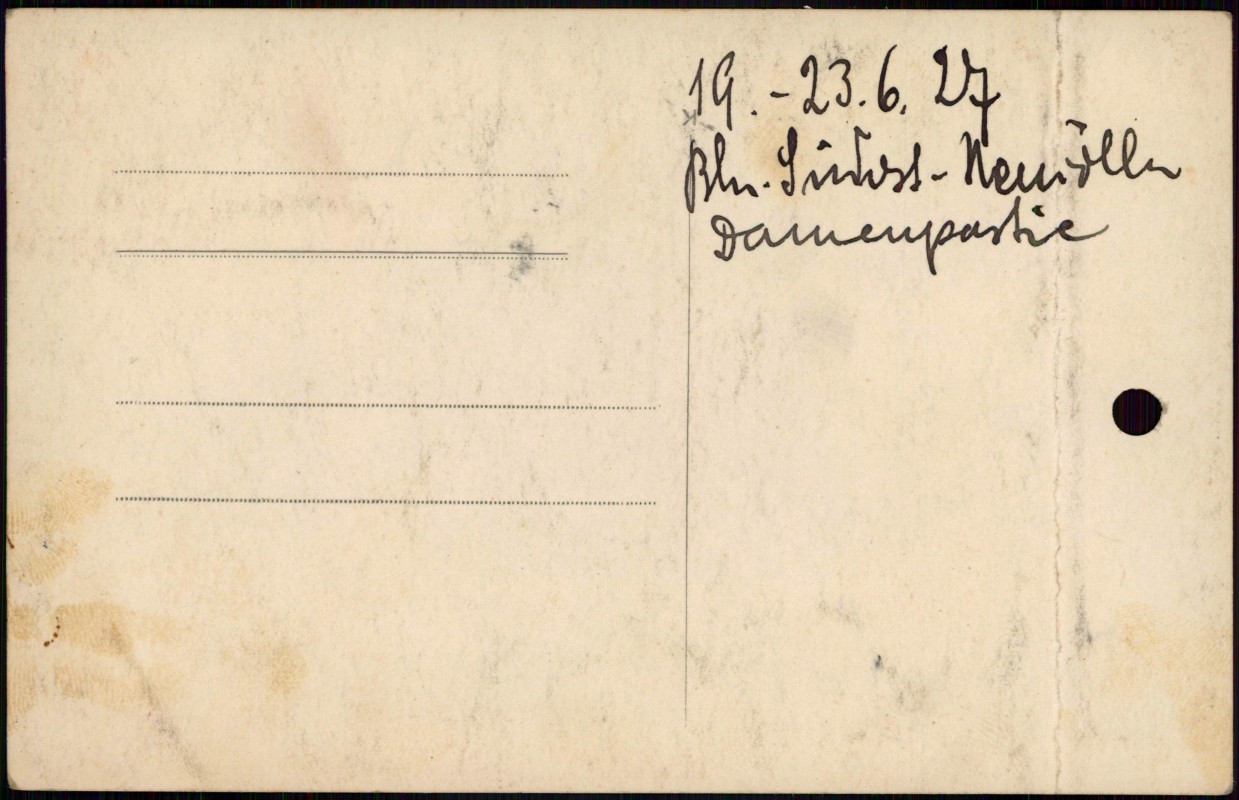 19.-23.6.27
Bln. Südost - Neukölln
Damenpartie